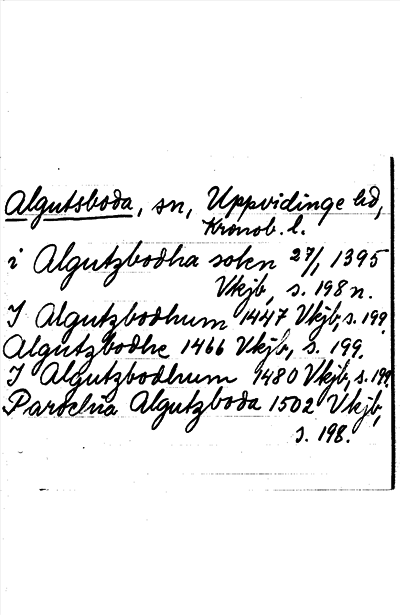 Algutsboda, sn, Uppvidinge hd,
Kronob. l.
i Algutzbodha sokn 27/1 1395
Vkjb, s. 198 n.
I Algutzbodhum 1447 Vkjb, s. 199.
Algutzbodhe 1466 Vkjb, s. 199.
I Algutzbodhum 1480 Vkjb, s. 199.
Parochia Algutzboda 1502 Vkjb,
s. 198.